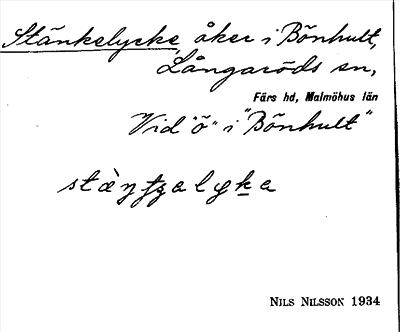 Stänkelycke, åker i Bönhult,
Långaröds sn,
Färs hd, Malmöhus län
Vid "ö" i "Bönhult"
NILS NILSSON 1934